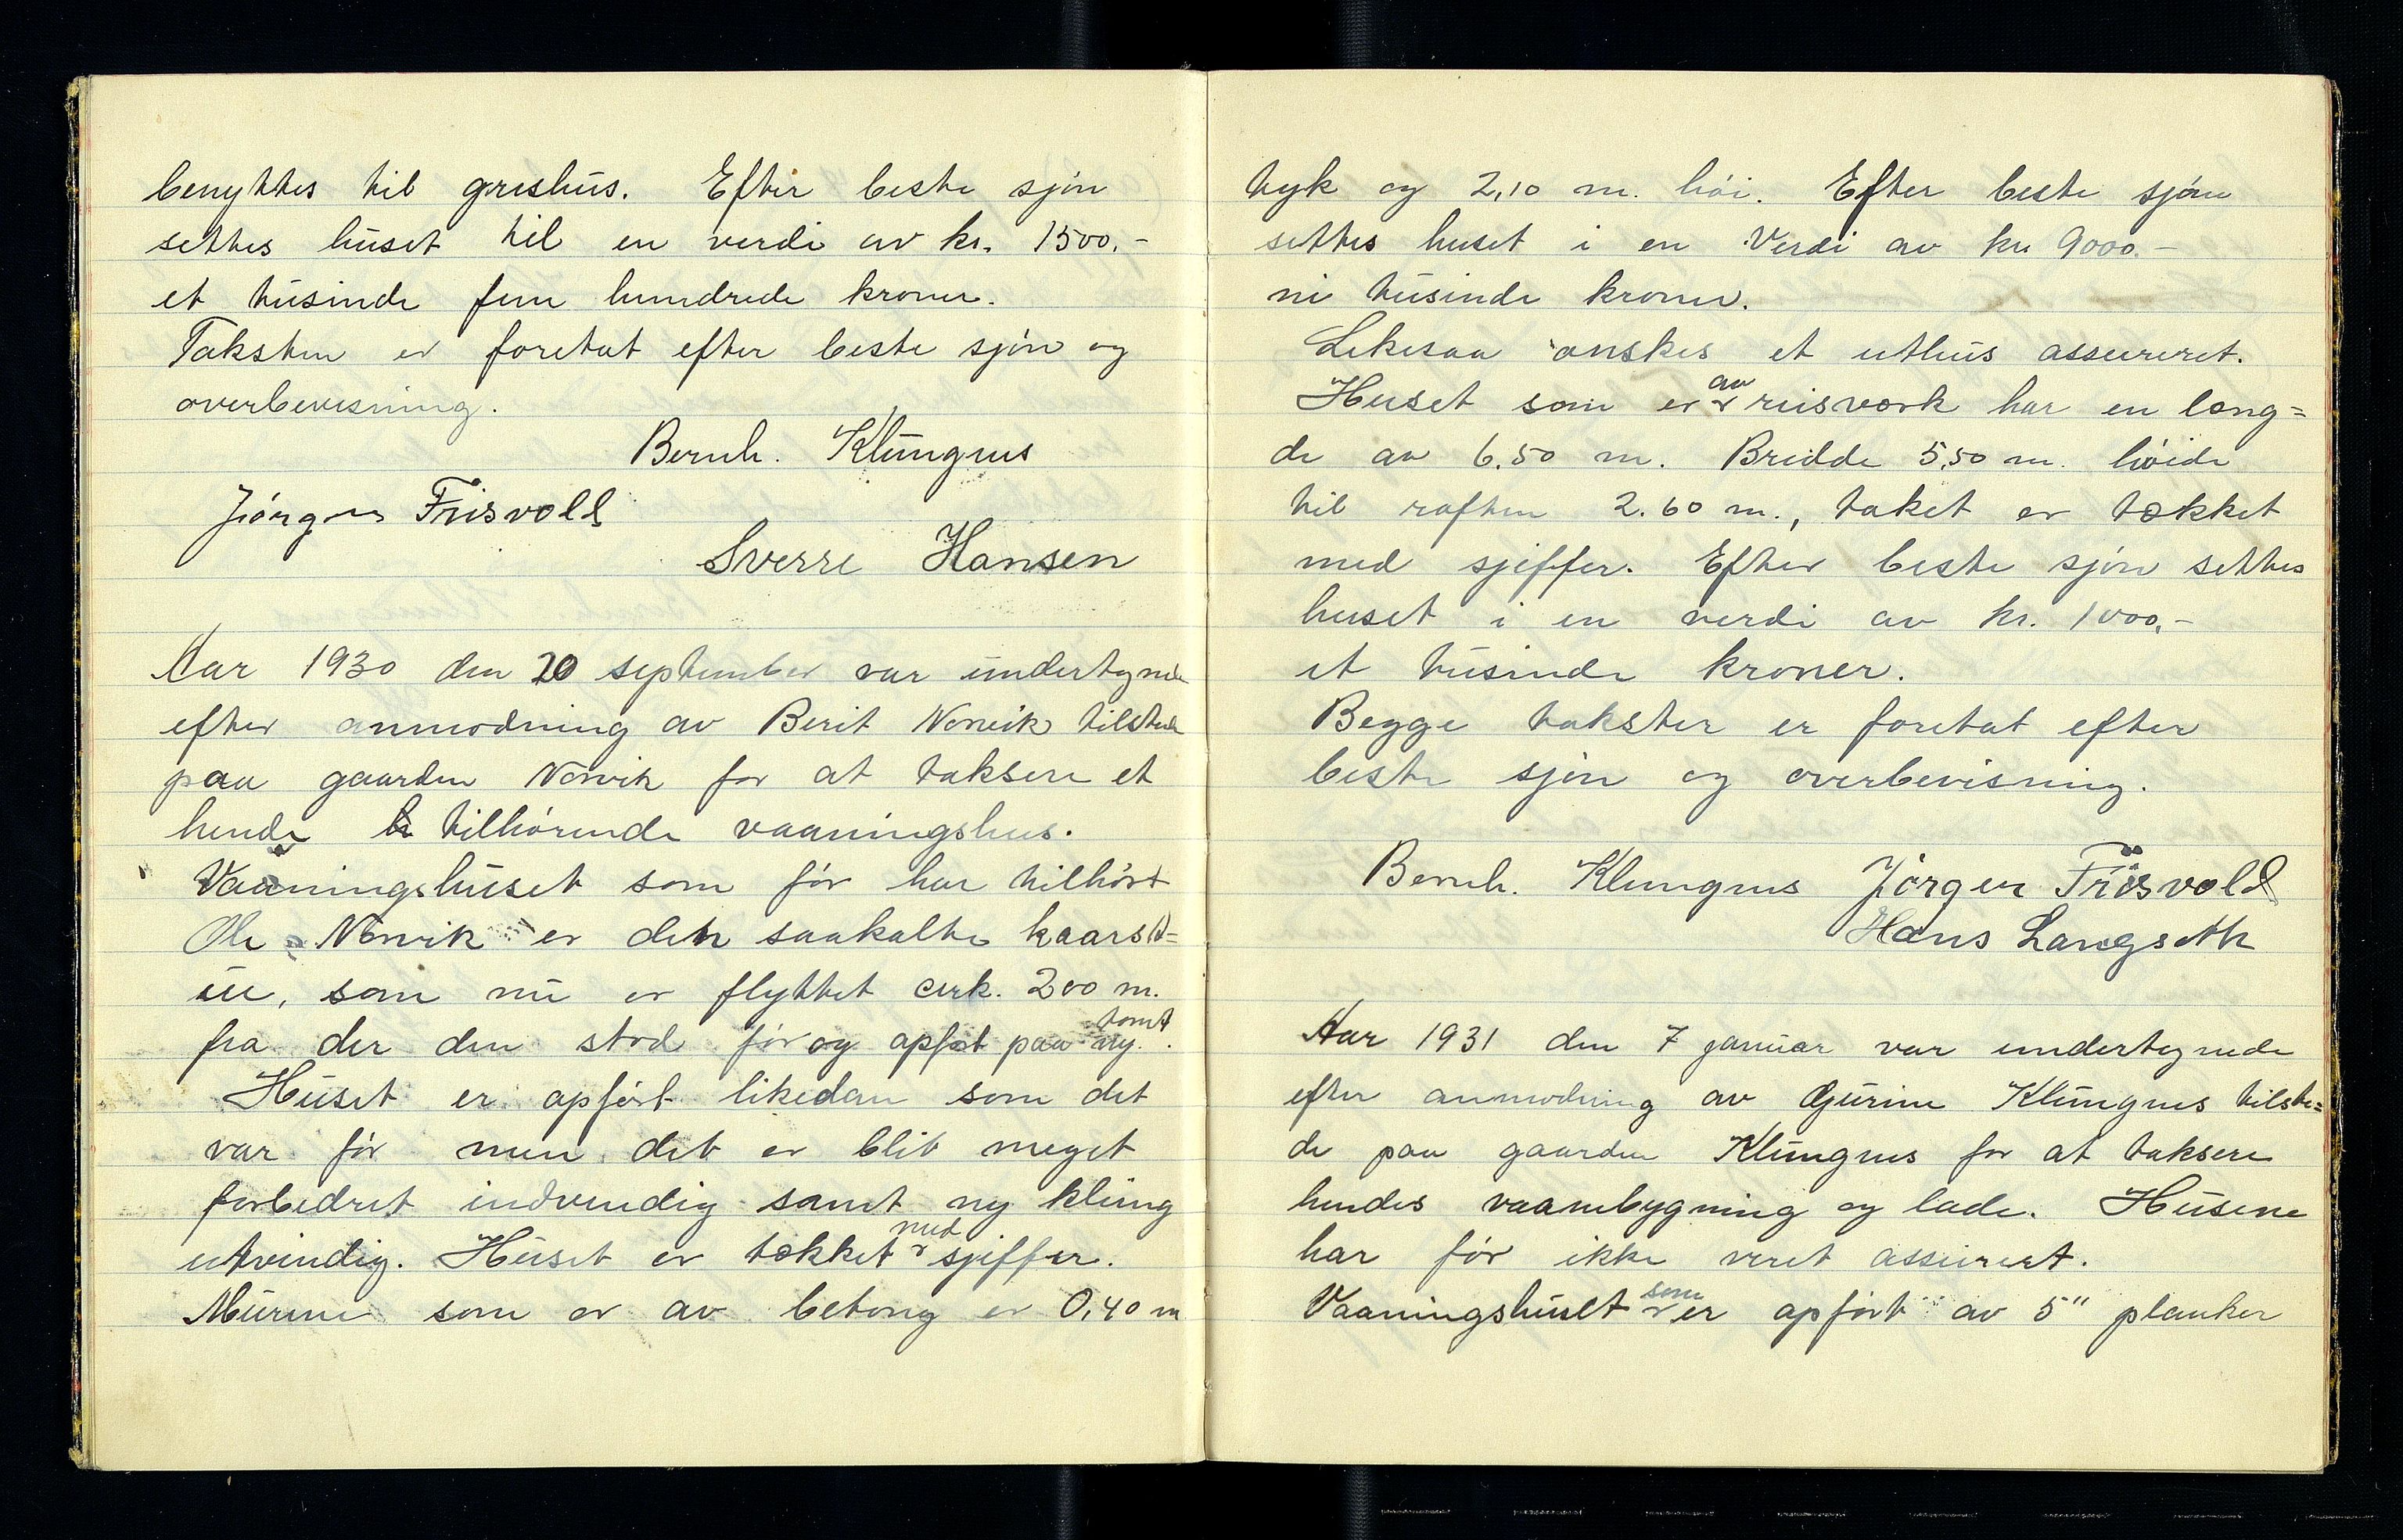 benyttes til grishus. Efter beste sjøn
settes huset til en verdi av kr. 1500.-
et tusinde fem hundrede kroner.
Taksten er foretat efter beste sjøn og
overbevisning.
Bernh. Klungnes
Jørgen Frisvold
Sverre Hansen
Aar 1930 den 20 september var undertegnede
efter anmodning av Berit Norvik tilstede
paa gaarden Norvik for at taksere et
hende tilhørende vaaningshus.
Vaaningshuset som før har tilhørt
Ole Norvik er den saakalte kaarst=
ue, som nu er flyttet cirk. 200 m.
fra der den stod før og opført paa ny tomt.
Huset er opført likedan som det
var før men det er blit meget
forbedret indvendig samt ny kling
utvendig. Huset er tækket med sjiffer.
Murene som er av betong er 0,40 m
tyk og 2,10 m. høi. Efter beste sjøn
settes huset i en Verdi av kr. 9000.-
ni tusinde kroner.
Likesaa ønskes et uthus assureret.
Huset som er av riisverk har en læng=
de av 6.50 m. Bredde 5,50 m. høide
til raften 2.60 m., taket er tækket
med sjiffer. Efter beste sjøn settes
huset i en verdi av kr. 1000,-
et tusinde kroner.
Begge takster er foretat efter
beste sjøn og overbevisning.
Bernh. Klungnes Jørgen Frisvold
Hans Langseth
Aar 1931 den 7 januar var undertegnede
efter anmodning av Gurine Klungnes tilste=
de paa gaarden Klungnes for at taksere
hendes vaanebygning og lade. Husene
har før ikke veret assurert.
Vaaningshuset som er opført av 5" planker